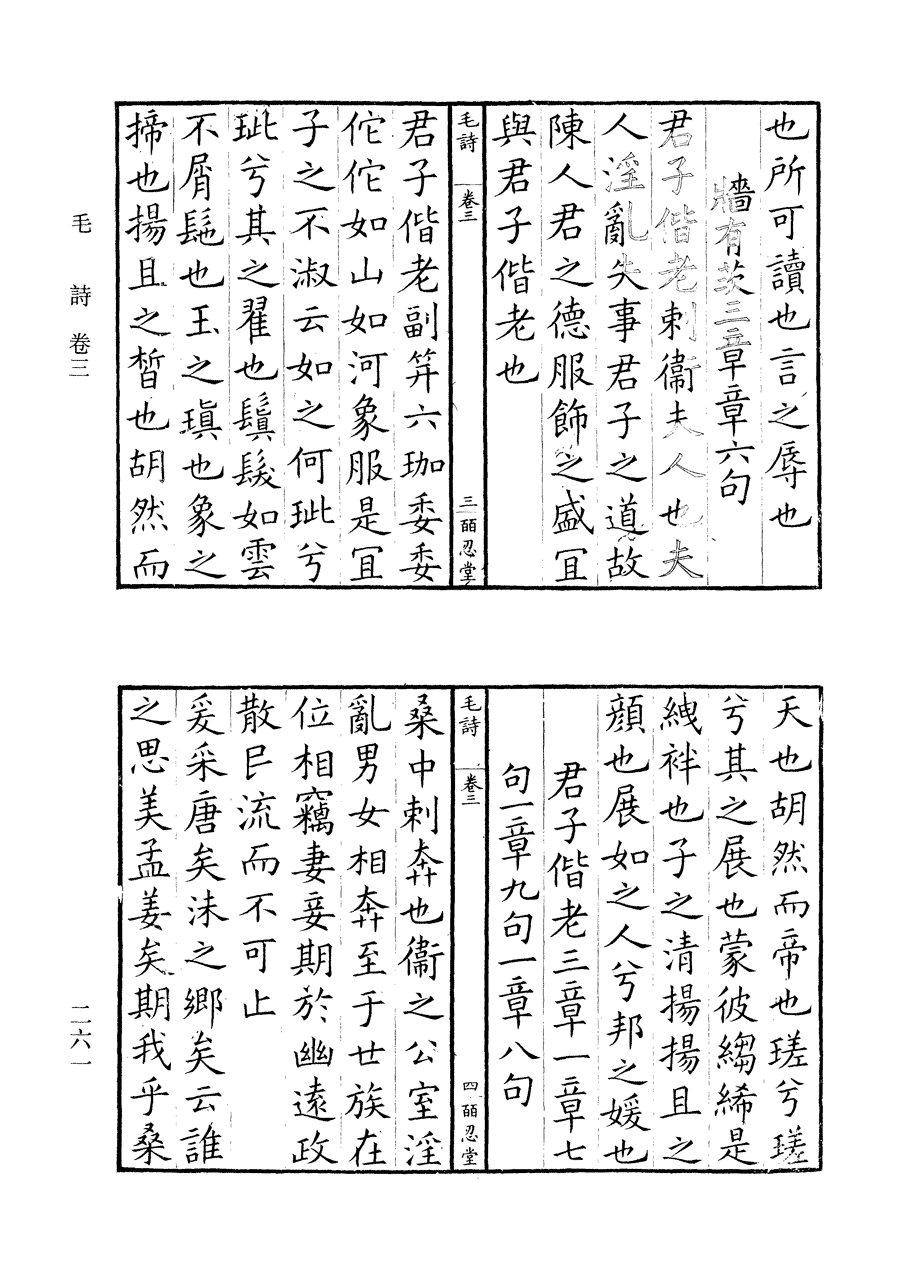 也所可讀也言之辱也
牆有茨三章章六句
君子偕老刺衞夫人也夫
人淫亂失事君子之道故
陳人君之德服飾之盛冝
與君子偕老也
毛詩 卷三 三 皕忍堂
君子偕老副笄六珈委委
佗佗如山如河象服是冝
子之不淑云如之何玼兮
玼兮其之翟也鬒髮如雲
不屑髢也玉之瑱也象之
揥也揚且之晳也胡然而
天也胡然而帝也瑳兮瑳
兮其之展也蒙彼縐絺是
絏袢也子之清揚揚且之
顔也展如之人兮邦之媛也
君子偕老三章一章七
句一章九句一章八句
毛詩 卷三 四 皕忍堂
桑中刺奔也衞之公室淫
亂男女相奔至于世族在
位相竊妻妾期於幽遠政
散民流而不可止
爰采唐矣沬之鄉矣云誰
之思美孟姜矣期我乎桑
毛詩 卷三
二六一